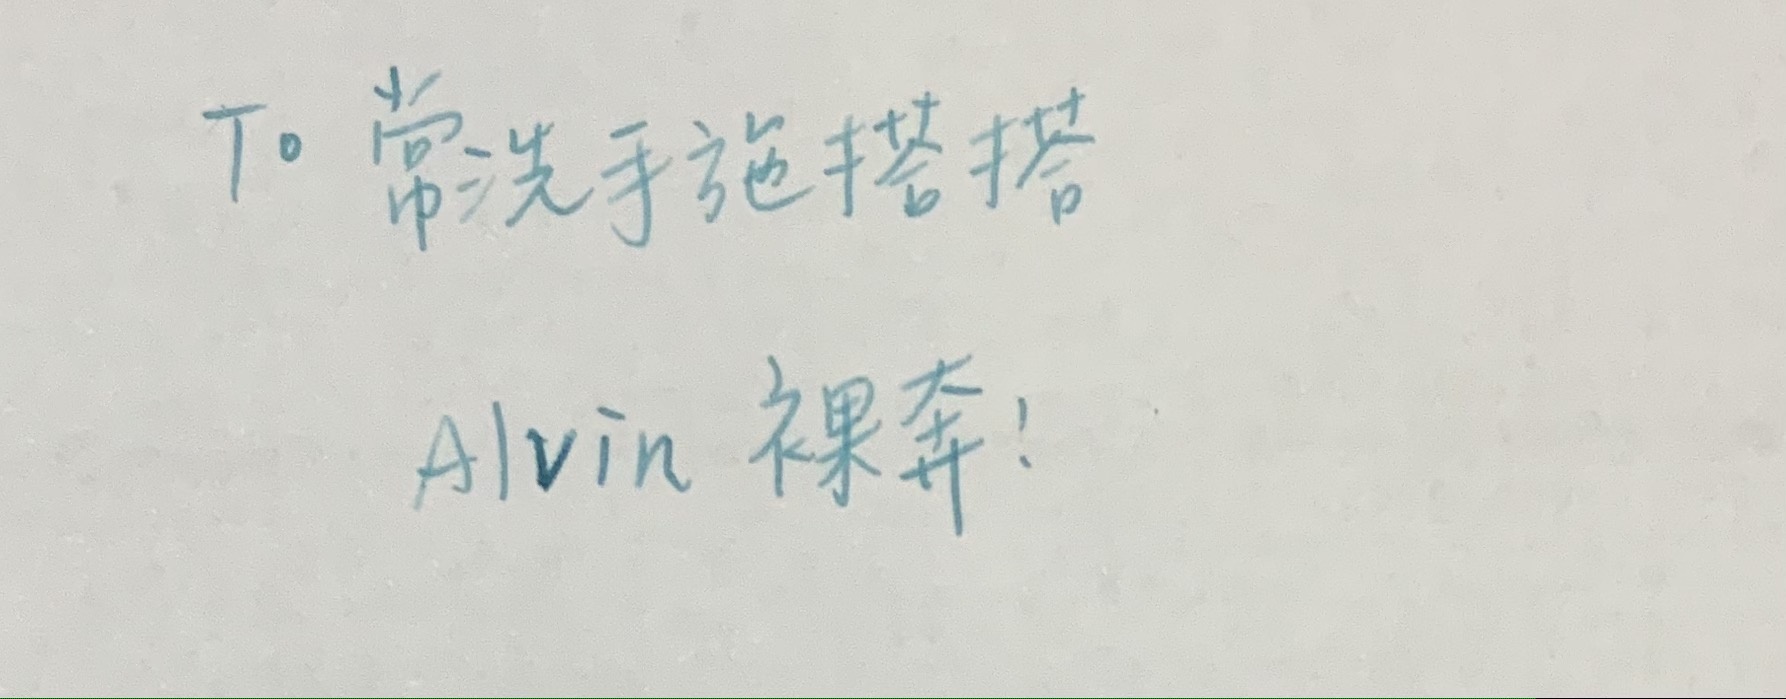 To 常洗手施搭搭
Alvin 裸奔!